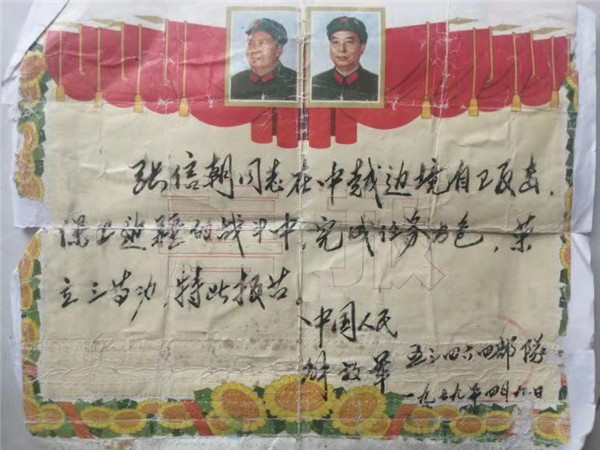 喜报
张信朝同志在中越边境自卫反击,
保卫边疆的战斗中,完成任务出色,荣
立三等功,特此报告。
中国人民
解放军 五三四六四部队
一九七九年四月 日